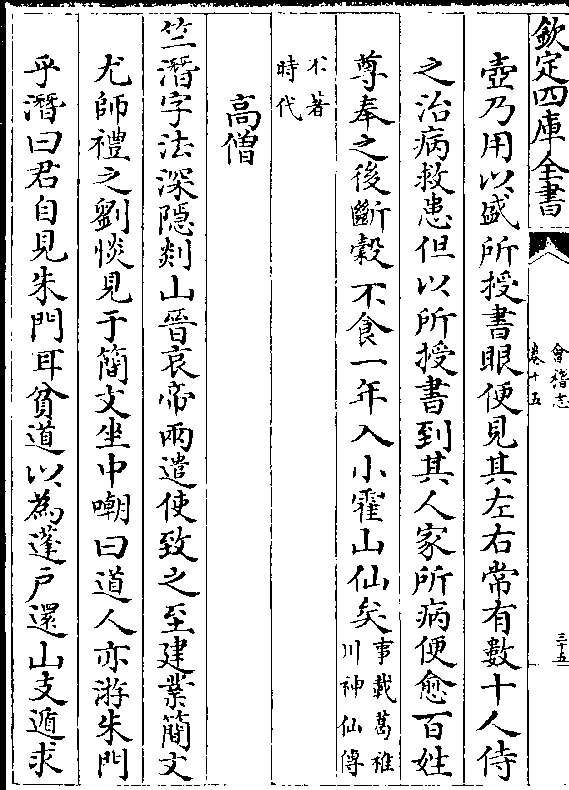 欽定四庫全書
會稽志
卷十五
三十五
壺乃用以盛所授書眼便見其左右常有數十人侍
之治病救患但以所授書到其人家所病便愈百姓
尊奉之後斷榖不食一年入小霍山仙矣事載葛稚
川神仙傳
不著
時代
高僧
竺潛字法深隱剡山晉哀帝兩遣使致之至建業簡文
尤師禮之劉惔見于簡文坐中嘲曰道人亦游朱門
乎潛曰君自見朱門耳貧道以為蓬戶還山支遁求